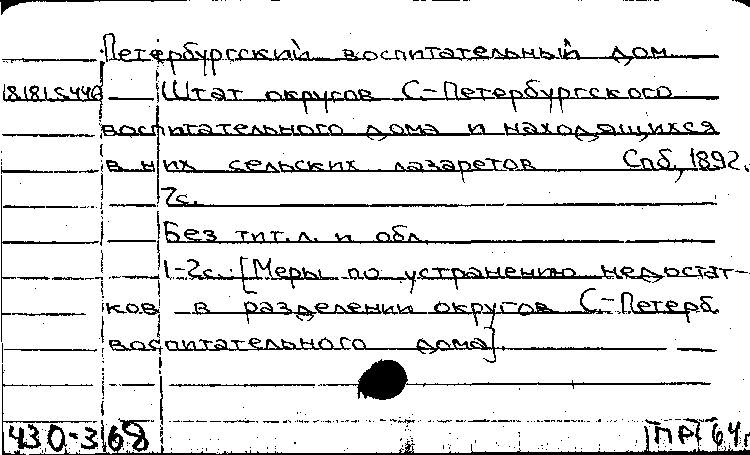 Петербургский воспитательный дом
18.181.5.446 Штат округов С.-Петербургского
воспитательного дома и находящихся
в них сельских лазаретов Спб, 1892.
7с.
Без тит. л. и обл.
1-2с.: [Меры по устранению недостат-
ков в разделении округов С.-Петерб.
воспитательного дома].
430-3/68 ПР 64г